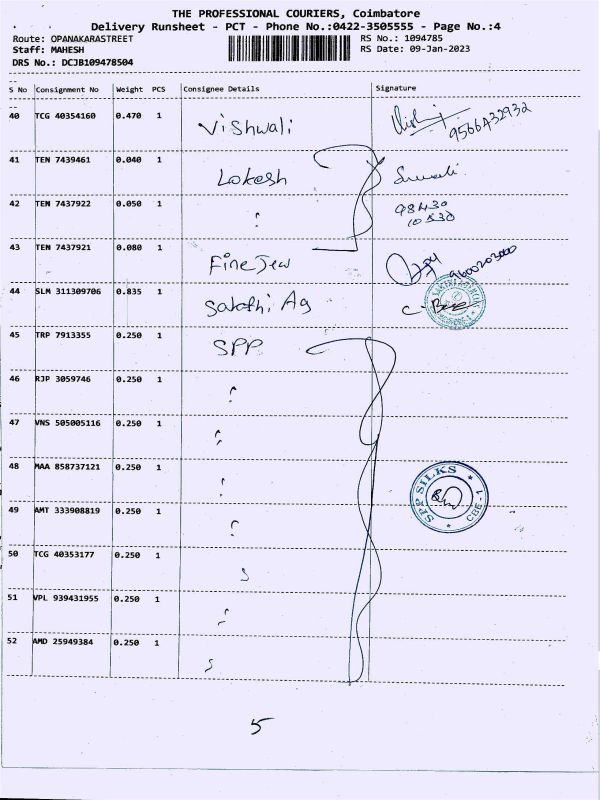 THE PROFESSIONAL COURIERS, Coimbatore
Delivery Runsheet - PCT - Phone No.:0422-3505555 - Page No.:4
Route: OPANAKARASTREET RS No.: 1094785
Staff: MAHESH RS Date: 09-Jan-2023
DRS No.: DCJB109478504
S No Consignment No Weight PCS Consignee Details Signature
40 TCG 40354160 0.470 1 Vishwali 9566432932
41 TEN 7439461 0.040 1 Lokesh
42 TEN 7437922 0.050 1 " 98430
10530
43 TEN 7437921 0.080 1 Fine Jew 9600203000
44 SLM 311309706 0.835 1 Sakthi Ag
45 TRP 7913355 0.250 1 SPP
46 RJP 3059746 0.250 1 "
47 VNS 505005116 0.250 1 "
48 MAA 858737121 0.250 1 "
SPP SILKS
CBE-1
49 AMT 333908819 0.250 1 "
50 TCG 40353177 0.250 1 "
51 VPL 939431955 0.250 1 "
52 AMD 25949384 0.250 1 "
5